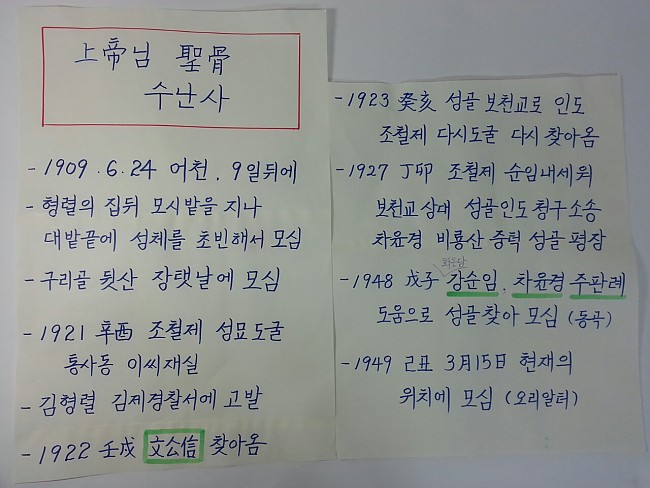 上帝님 聖骨
수난사
- 1909.6.24 어천. 9일뒤에
- 형렬의 집뒤 모시밭을 지나
대밭끝에 성체를 초빈해서 모심
- 구리골 뒷산 장탯날에 모심
- 1921 辛酉 조철제 성묘도굴
통사동 이씨재실
- 김형렬 김제경찰서에 고발
- 1922 壬戌 文公信 찾아옴
- 1923 癸亥 성골 보천교로 인도
조철제 다시도굴 다시 찾아옴
- 1927 丁卯 조철제 순임내세워
보천교상대 성골인도 청구소송
차윤경 비룡산 중턱 성골 평장
화은당
- 1948 戊子 강순임. 차윤경 주판례
도움으로 성골찾아 모심 (동곡)
- 1949 己丑 3月15日 현재의
위치에 모심 (오리알터)